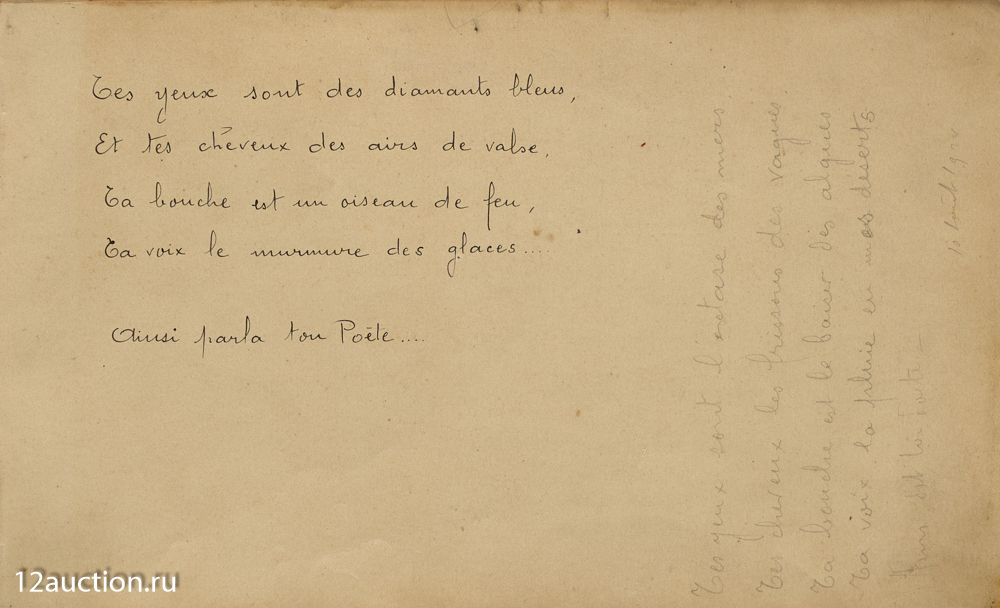 Tes yeux sont des diamants bleus,
Et tes cheveux des airs de valse.
Ta bouche est un oiseau de feu,
Ta voix le murmure des glaces....
Ainsi parla ton Poète....
Tes yeux sont l'extase des mers
Tes cheveux les frissons des vagues.
Ta bouche est le baiser des algues
Ta voix la pluie en mes déserts
est ton
12auction.ru